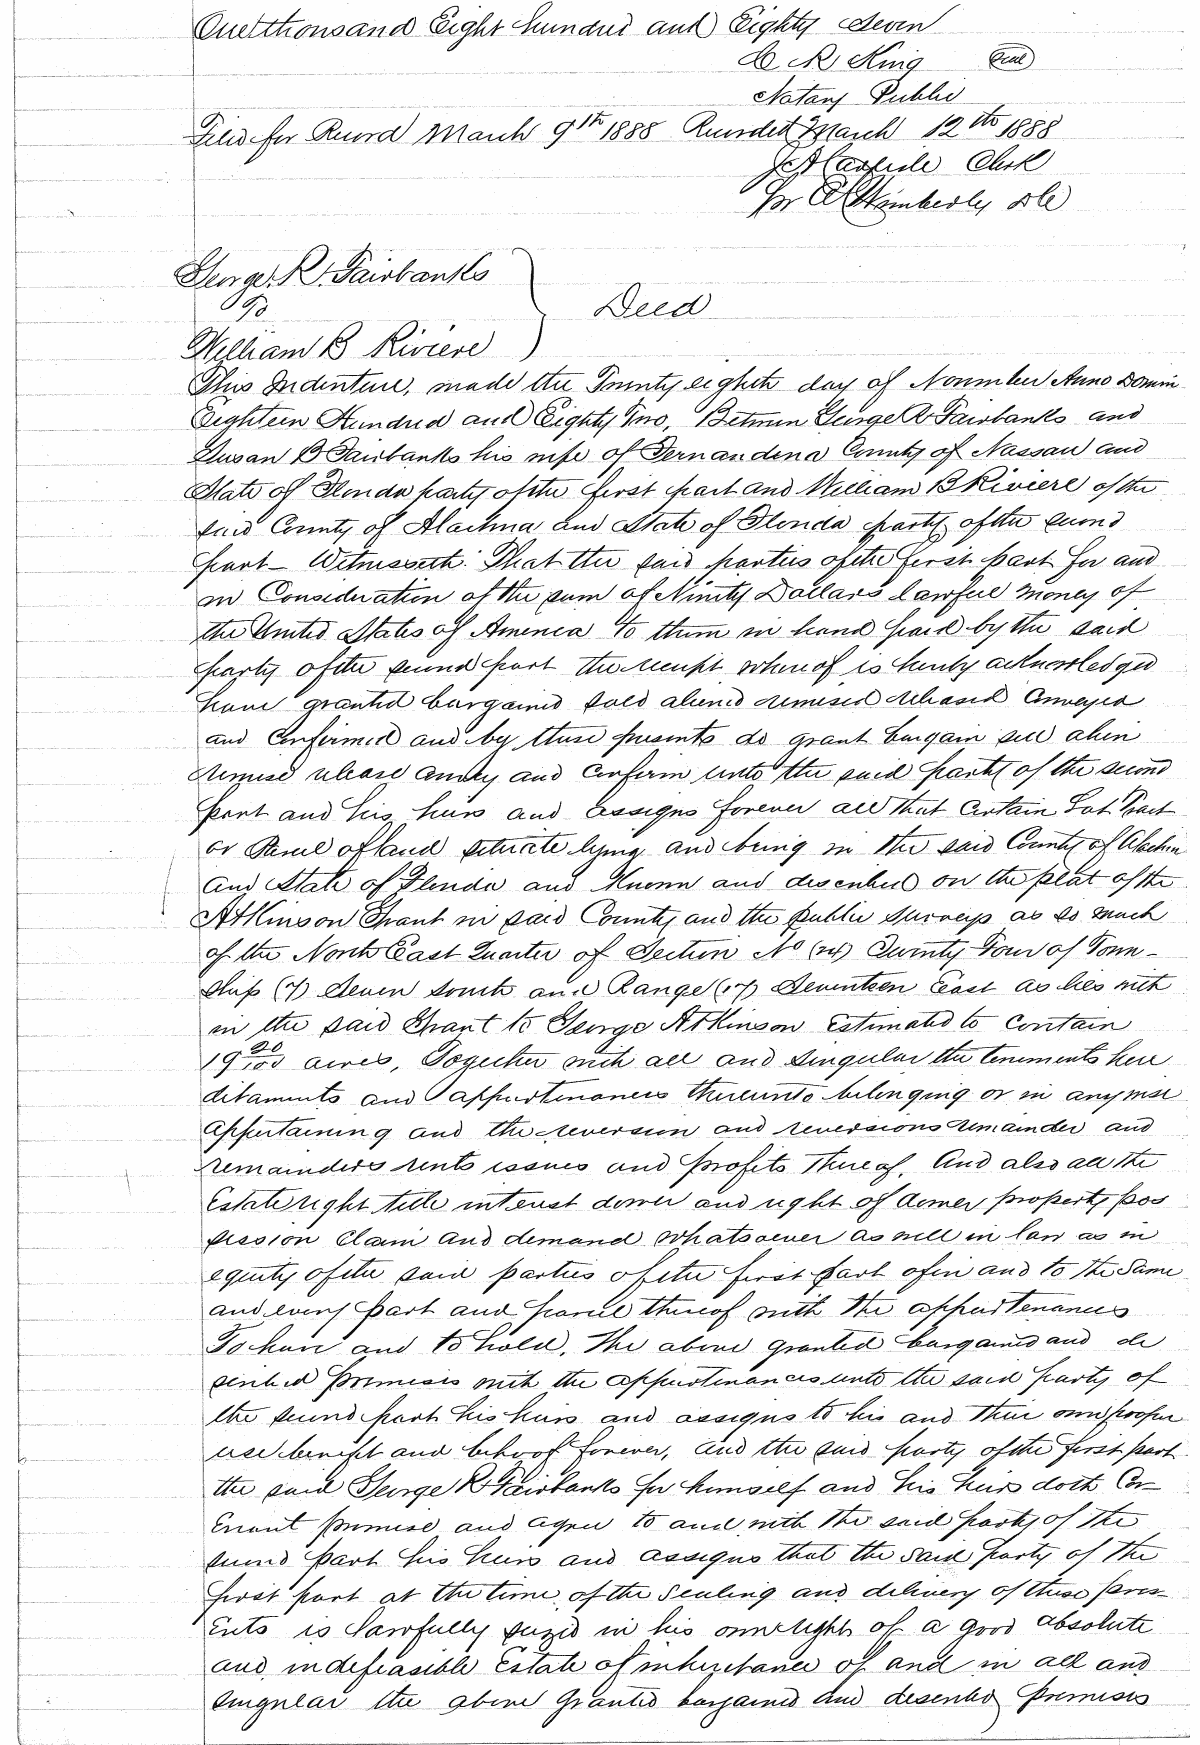 One thousand Eight hundred and Eighty Seven
C R King Seal
Notary Public
Filed for Record March 9th 1888 Recorded March 12th 1888
Clerk
Pr Wimberly DC
George R. Fairbanks
To
Deed
William B Riviere
This Indenture, made the Twenty eighth day of November Anno Domini
Eighteen Hundred and Eighty Two, Between George R Fairbanks and
Susan B Fairbanks his wife of Fernandina County of Nassau and
State of Florida party of the first part and William B Riviere of the
said County of Alachua and State of Florida party of the second
part – Witnesseth: That the said parties of the first part for and
in Consideration of the sum of Ninety Dollars lawful money of
the United States of America to them in hand paid by the said
party of the second part the receipt whereof is hereby acknowledged
have granted bargained sold aliened remised released Conveyed
and Confirmed and by these presents do grant bargain sell alien
remise release convey and Confirm unto the said party of the second
part and his heirs and assigns forever all that Certain Lot Tract
or Parcel of land situate lying and being in the said County of Alachua
and State of Florida and Known and described on the plat of the
Atkinson Grant in said County and the public surveys as so much
of the North East Quarter of Section No (24) Twenty Four of Town-
ship (7) Seven South and Range (17) Seventeen East as lies with
in the said Grant to George Atkinson Estimated to contain
19 20/100 acres, Together with all and singular the tenements here
ditaments and appurtenances thereunto belonging or in anywise
appertaining and the reversion and reversions remainder and
remainders rents issues and profits thereof. And also all the
Estate right title interest dower and right of dower property pos
session Claim and demand whatsoever as well in law as in
equity of the said parties of the first part of in and to the same
and every part and parcel thereof with the appurtenances
To have and to hold, the above granted bargained and de
scribed premises with the appurtenances unto the said party of
the second part his heirs and assigns to his and their own proper
use benefit and behoof forever, and the said party of the first part
the said George R Fairbanks for himself and his heirs doth Cov
enant promise and agree to and with the said party of the
second part his heirs and assigns that the said party of the
first part at the time of the sealing and delivery of these pres-
ents is lawfully seized in his own right of a good absolute
and indefeasible Estate of inheritance of and in all and
singular the above Granted bargained and described premises